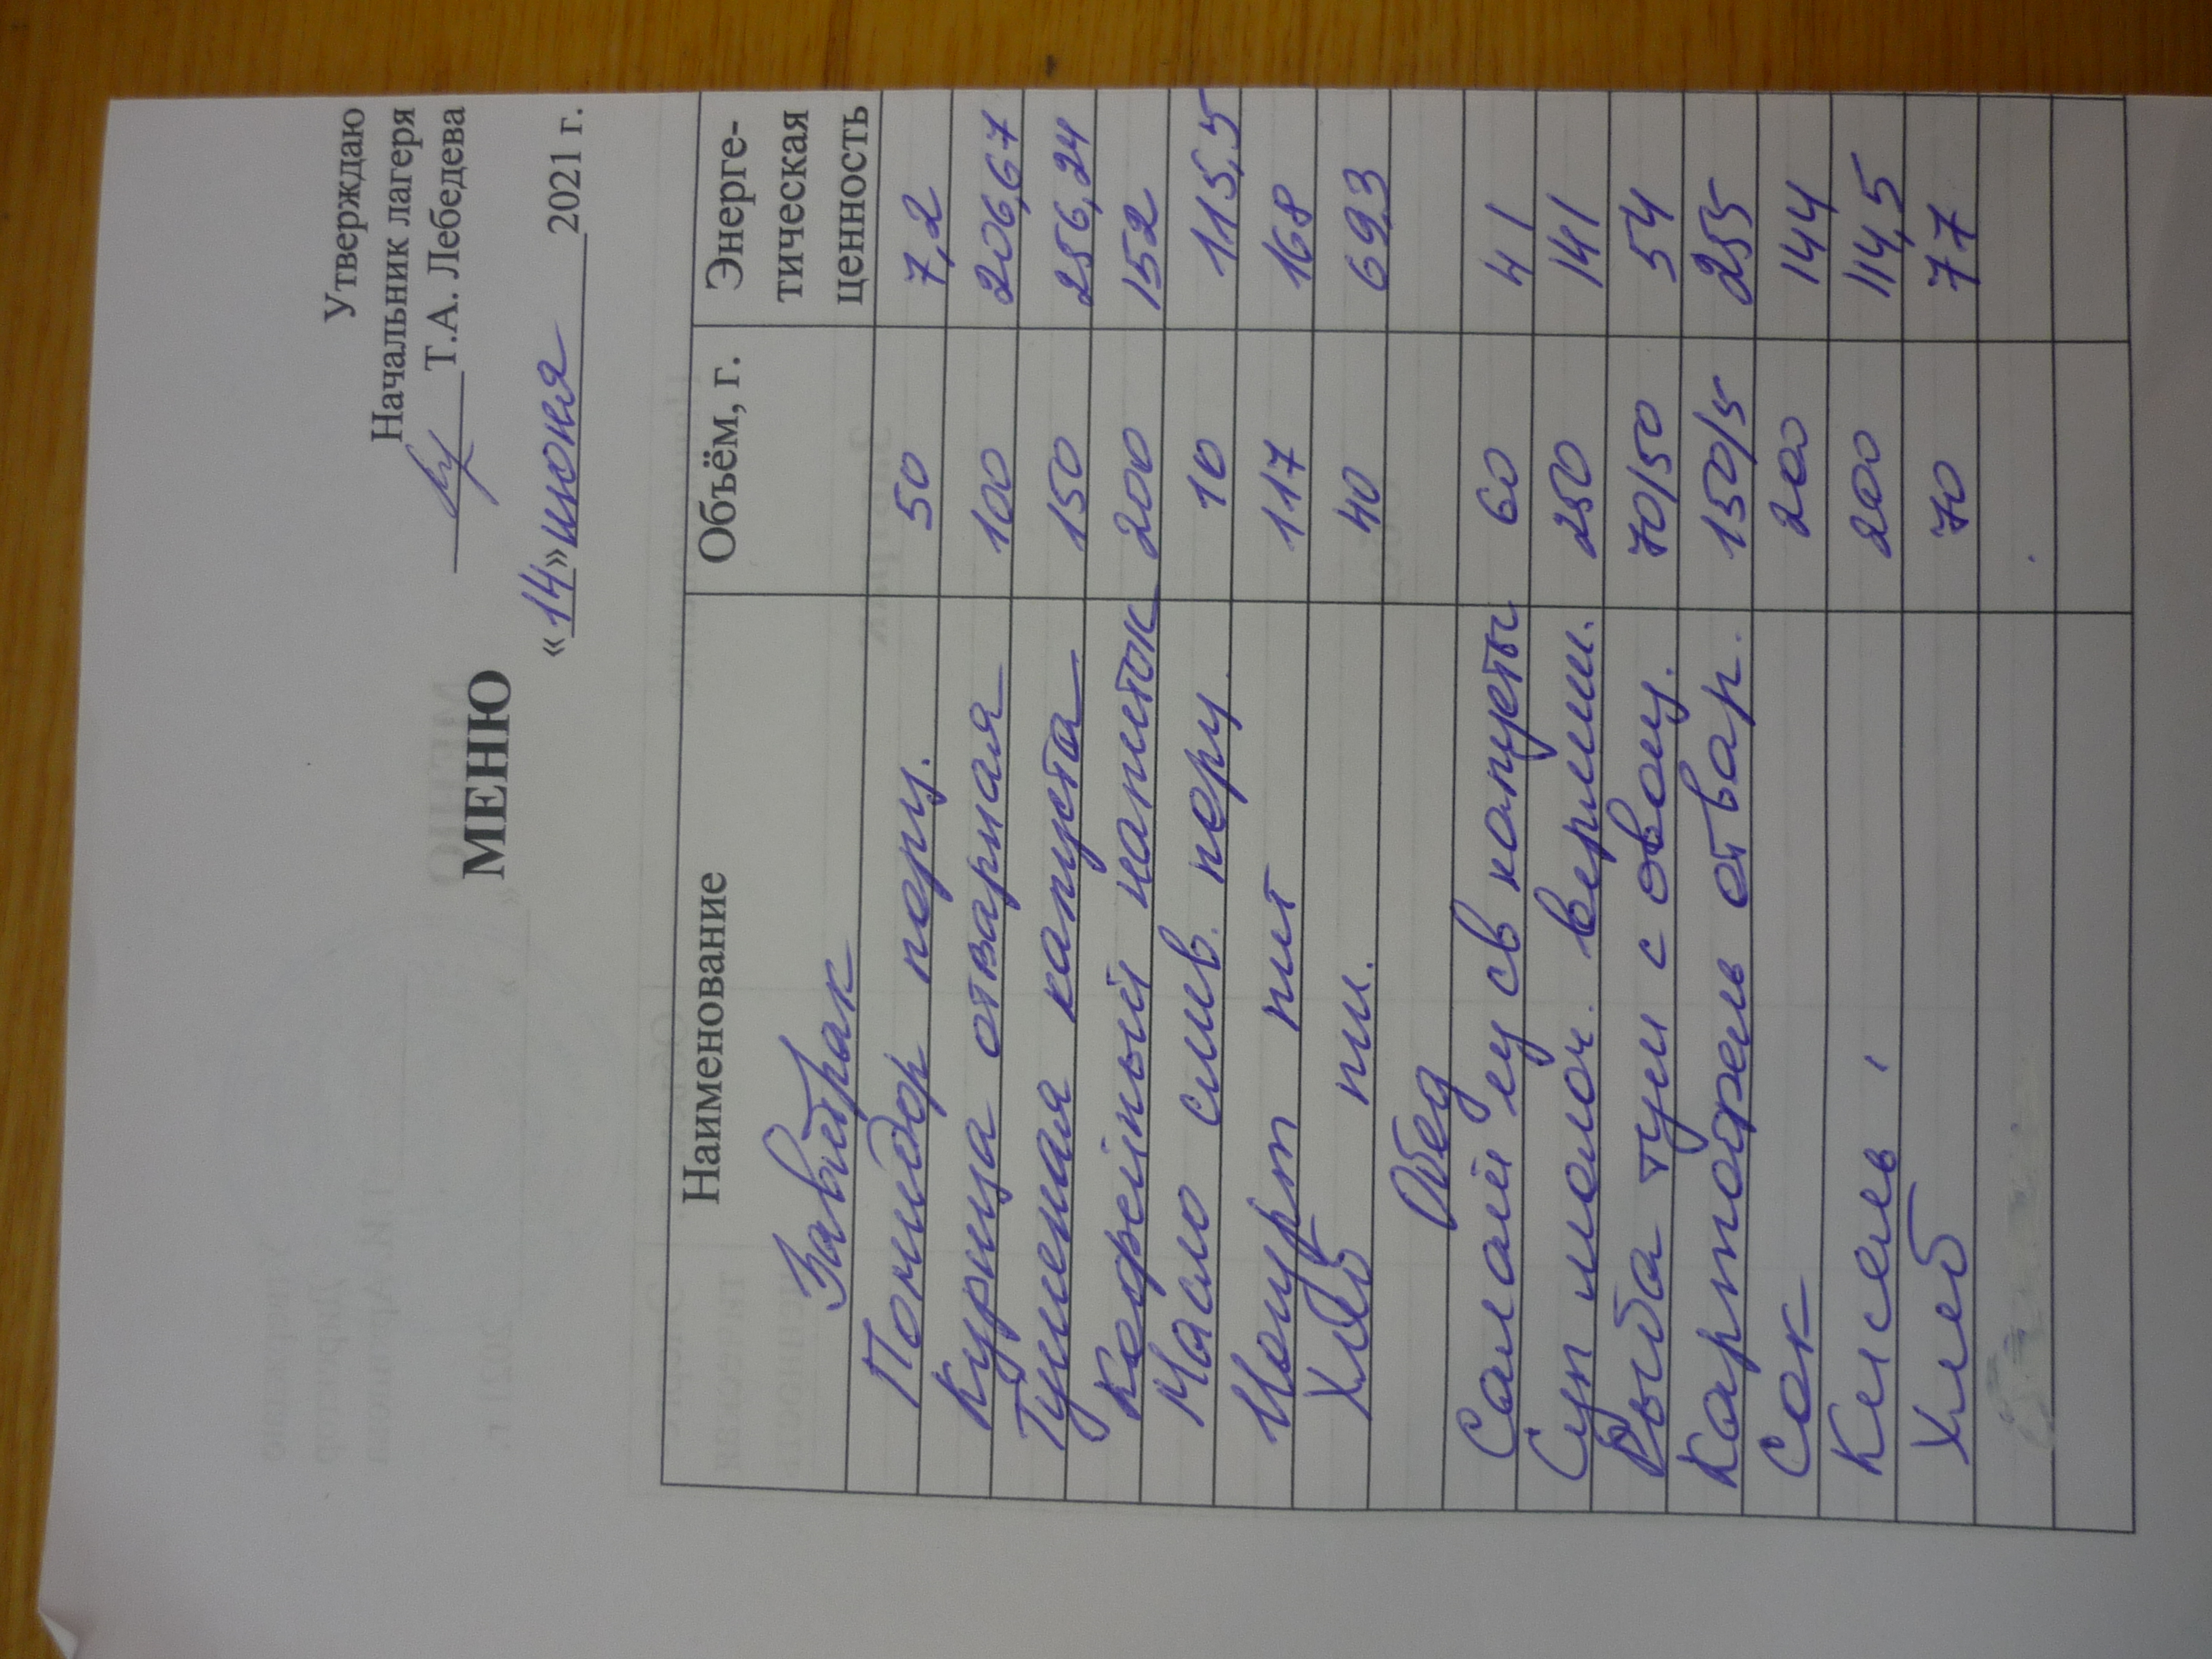 Утверждаю
Начальник лагеря
Т.А. Лебедева
«14» июня 2021 г.
МЕНЮ
Наименование Объём, г. Энерге-
тическая
ценность
Завтрак
Помидор порц. 50 7,2
Курица отварная 100 206,67
Тушеная капуста 150 256,24
Кофейный напиток 200 152
Масло слив. порц. 10 115,5
Йогурт пит 117 168
Хлеб пш. 40 69,3
Обед
Салат из св капусты 60 41
Суп молоч. вермиш. 250 141
Рыба туш с овощ. 70/50 54
Картофель отвар. 150/5 255
Сок 200 144
Кисель 200 114,5
Хлеб 70 77